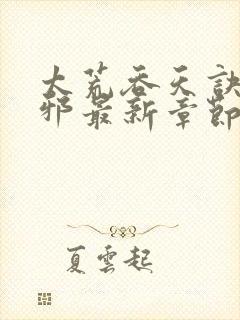 大荒吞天訣
邪最新章節
夏雲起